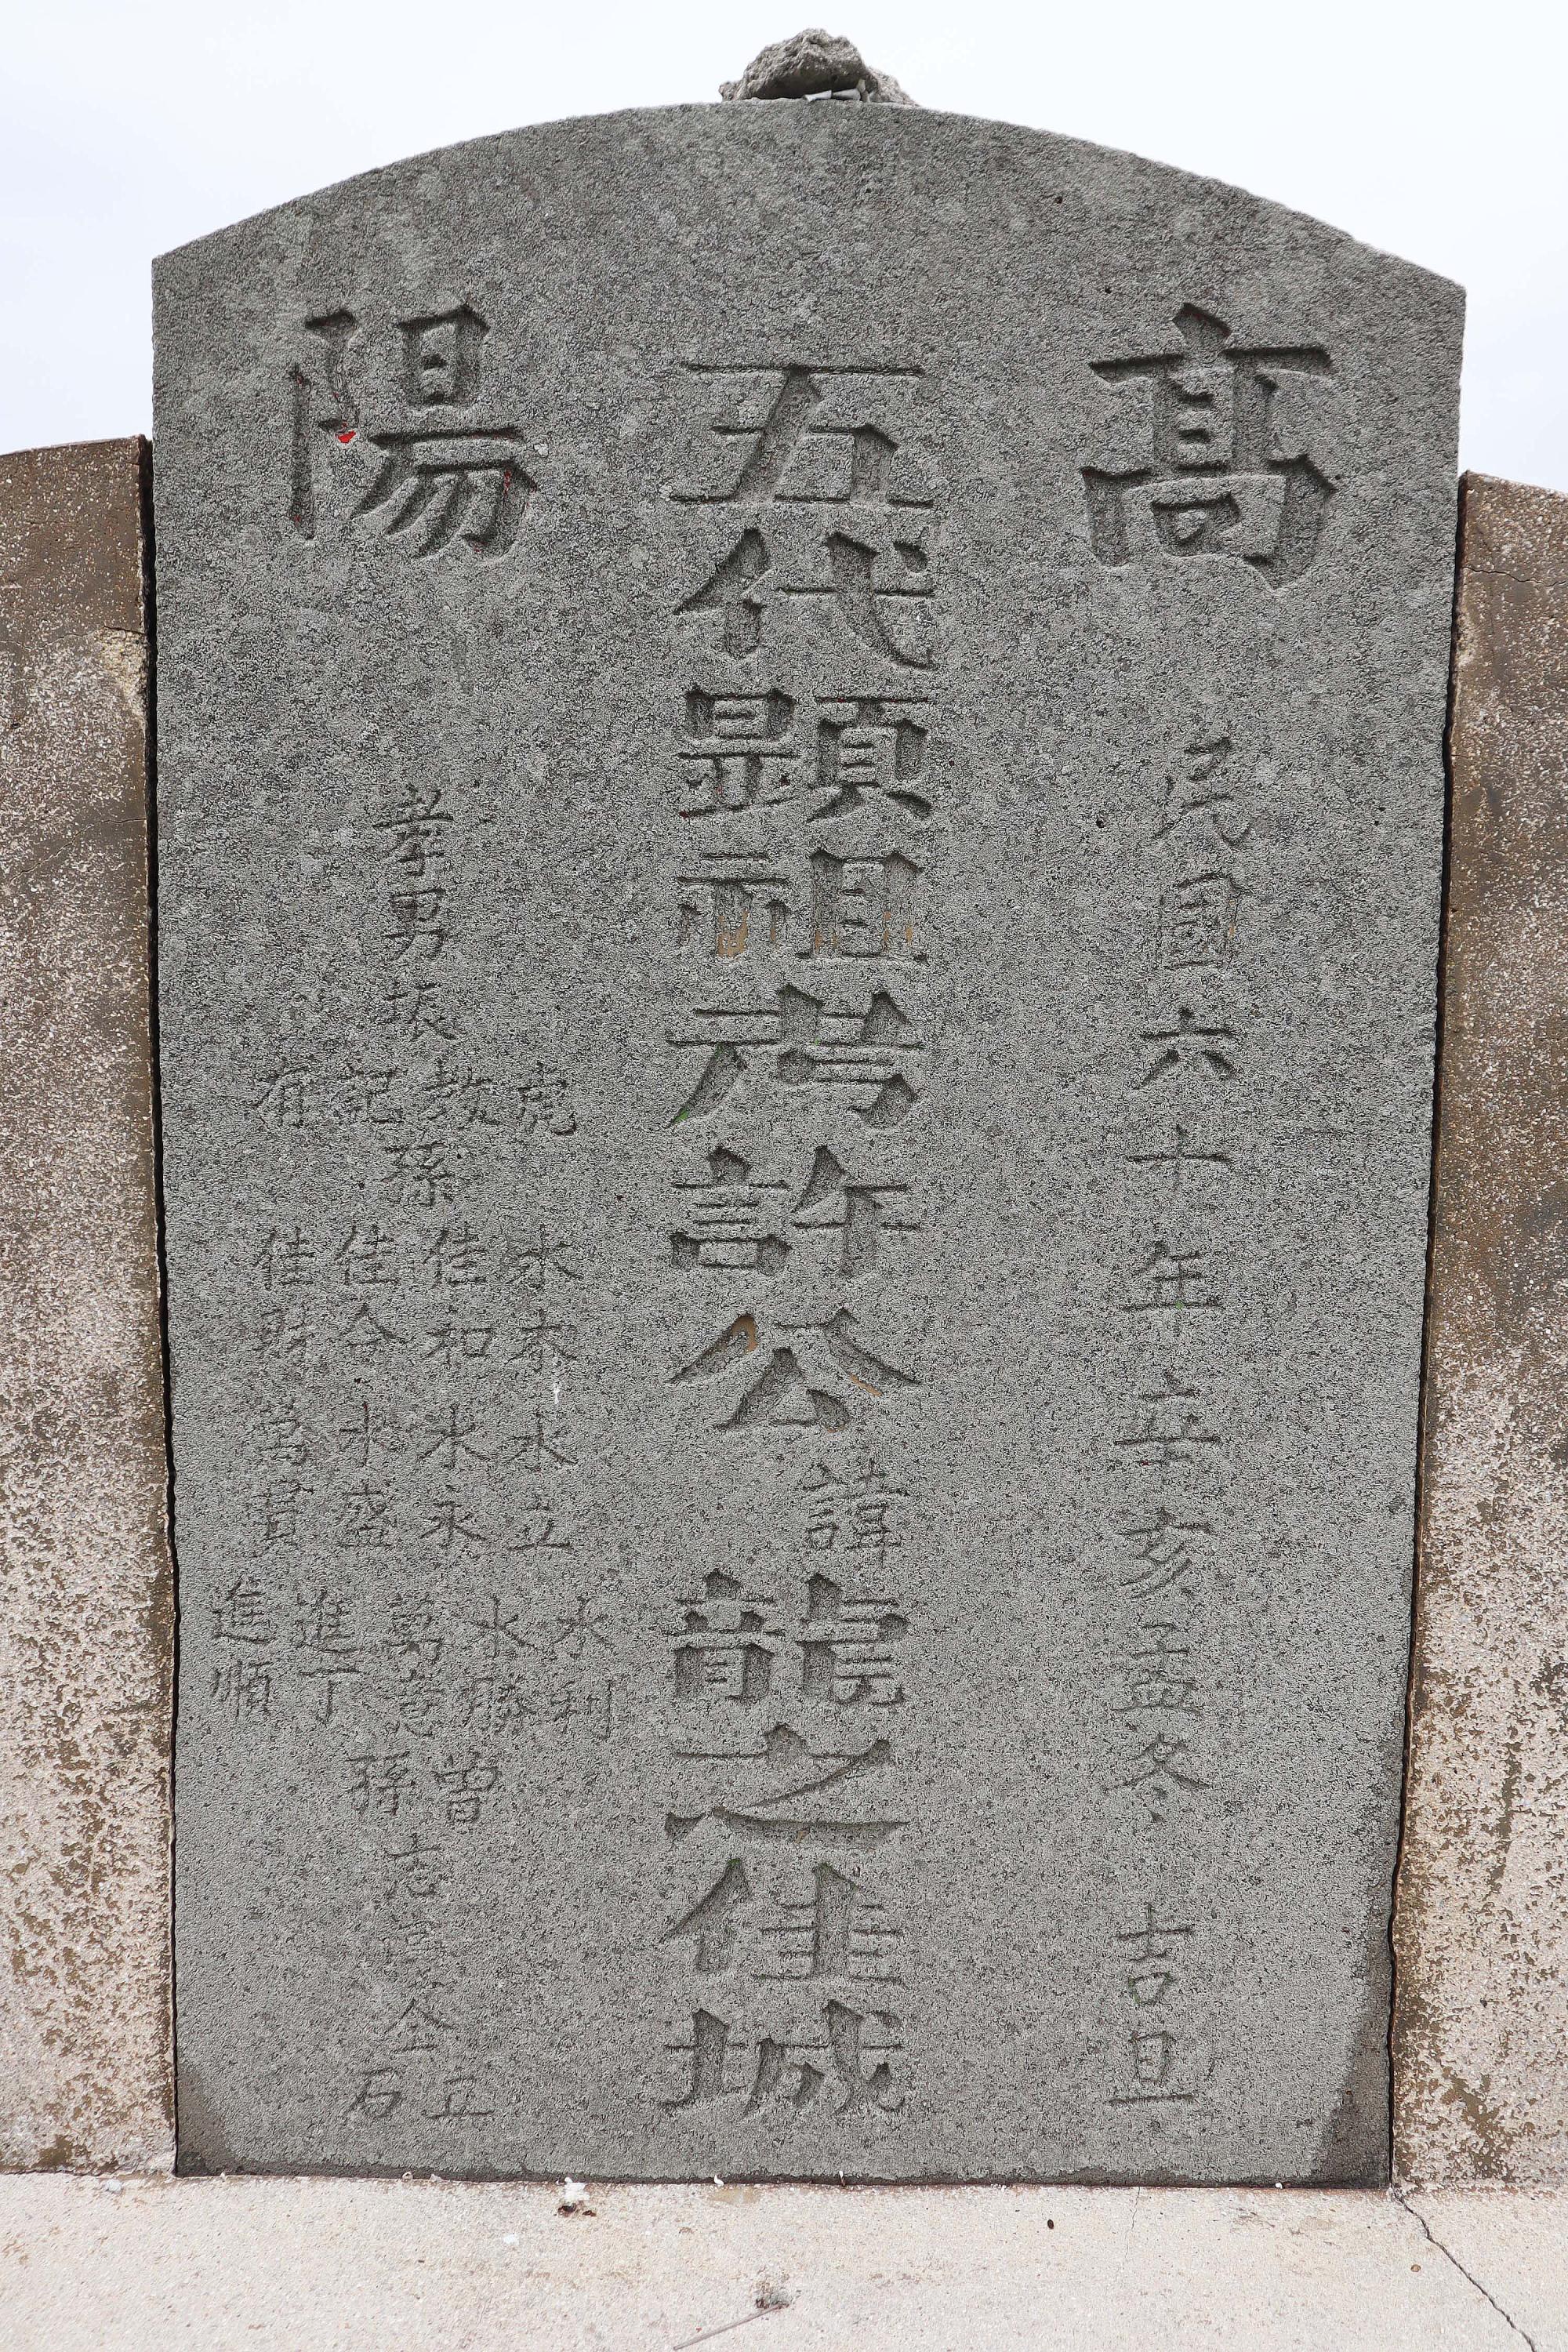 高陽
民國六十年辛亥孟冬 吉旦
五代顯祖考許公諱龍之佳城
孝男天
虎
教
記
有
孫
水木 水立 水利
佳和 水永 水勝
佳合 水盛 萬意
佳財 萬富 進丁
進順
曾孫
仝立石